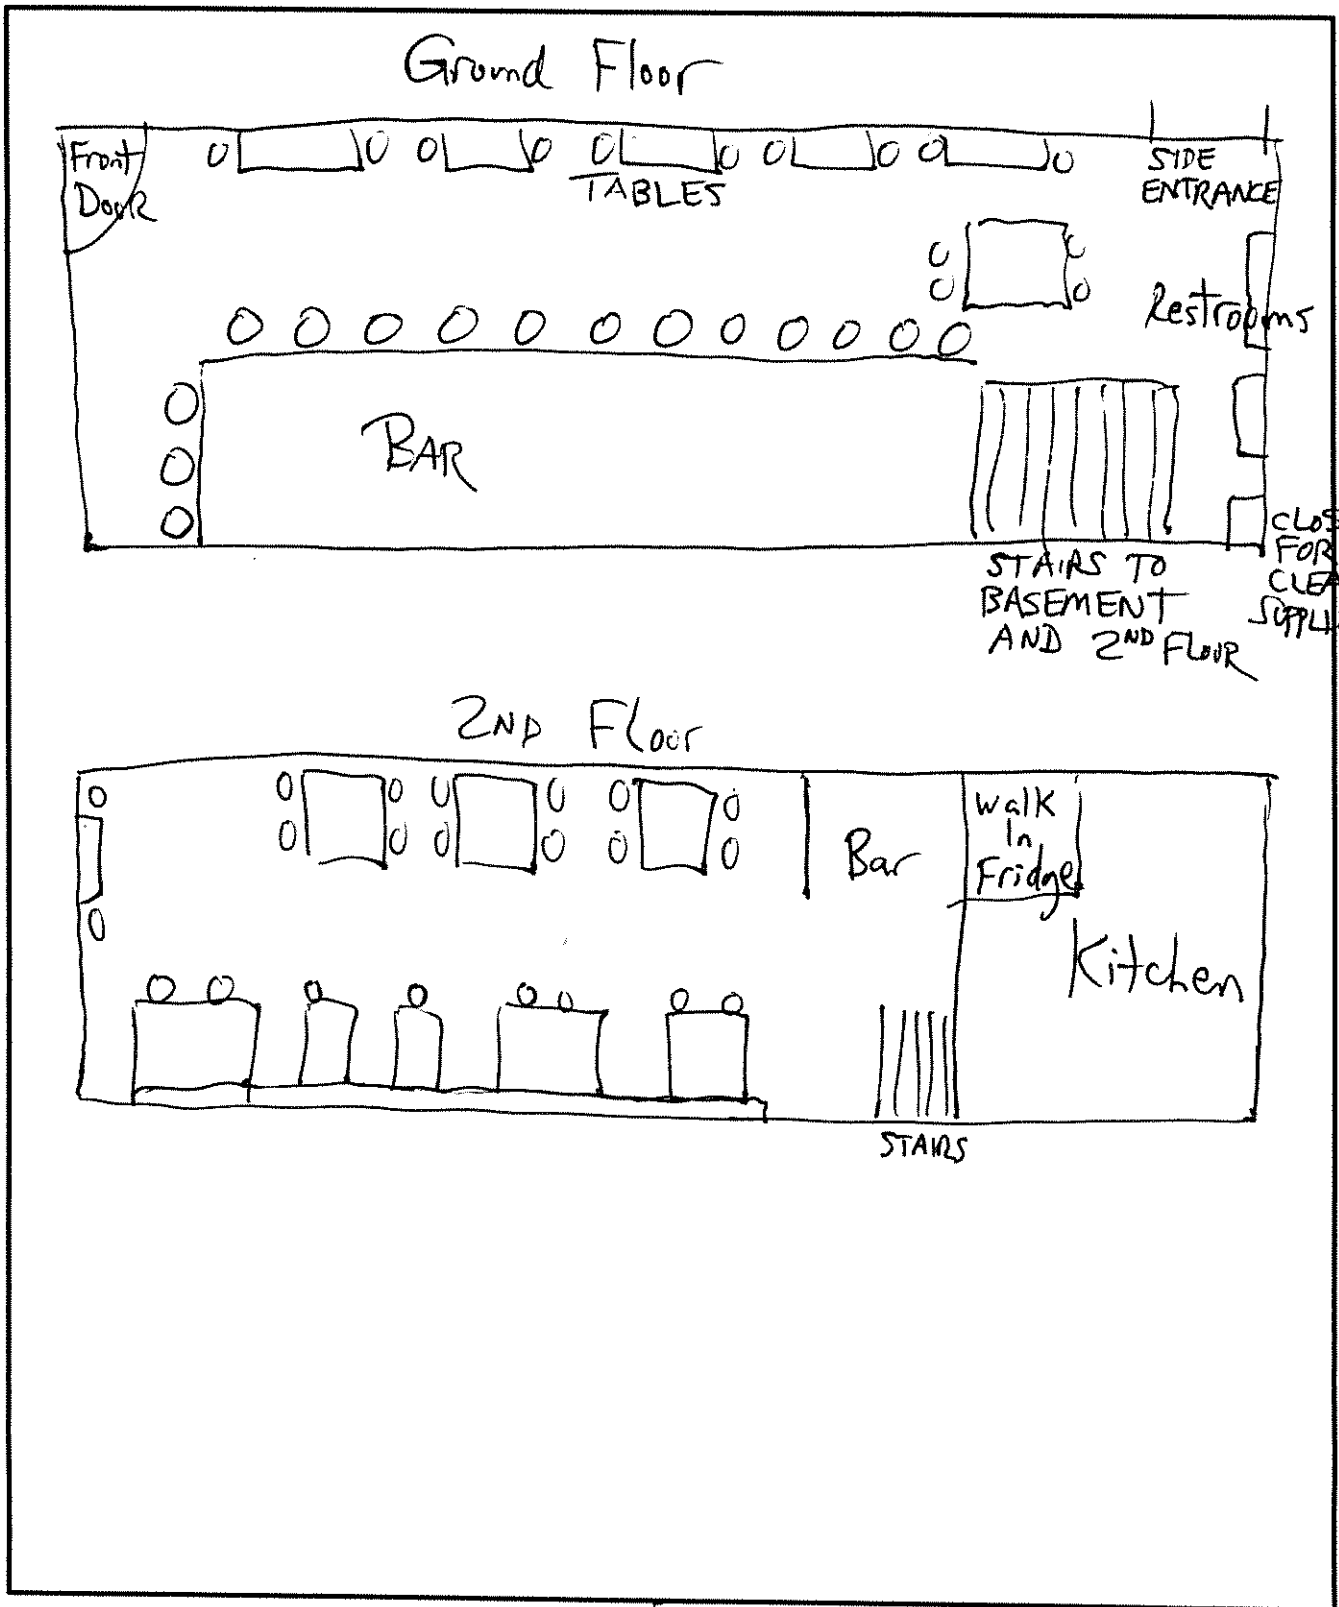 Ground Floor
Front
Door
TABLES
SIDE
ENTRANCE
Restrooms
BAR
STAIRS TO
BASEMENT
AND 2ND FLOOR
CLOS
FOR
CLEA
SUPPLI
2ND Floor
Walk
In
Fridge
Bar
Kitchen
STAIRS